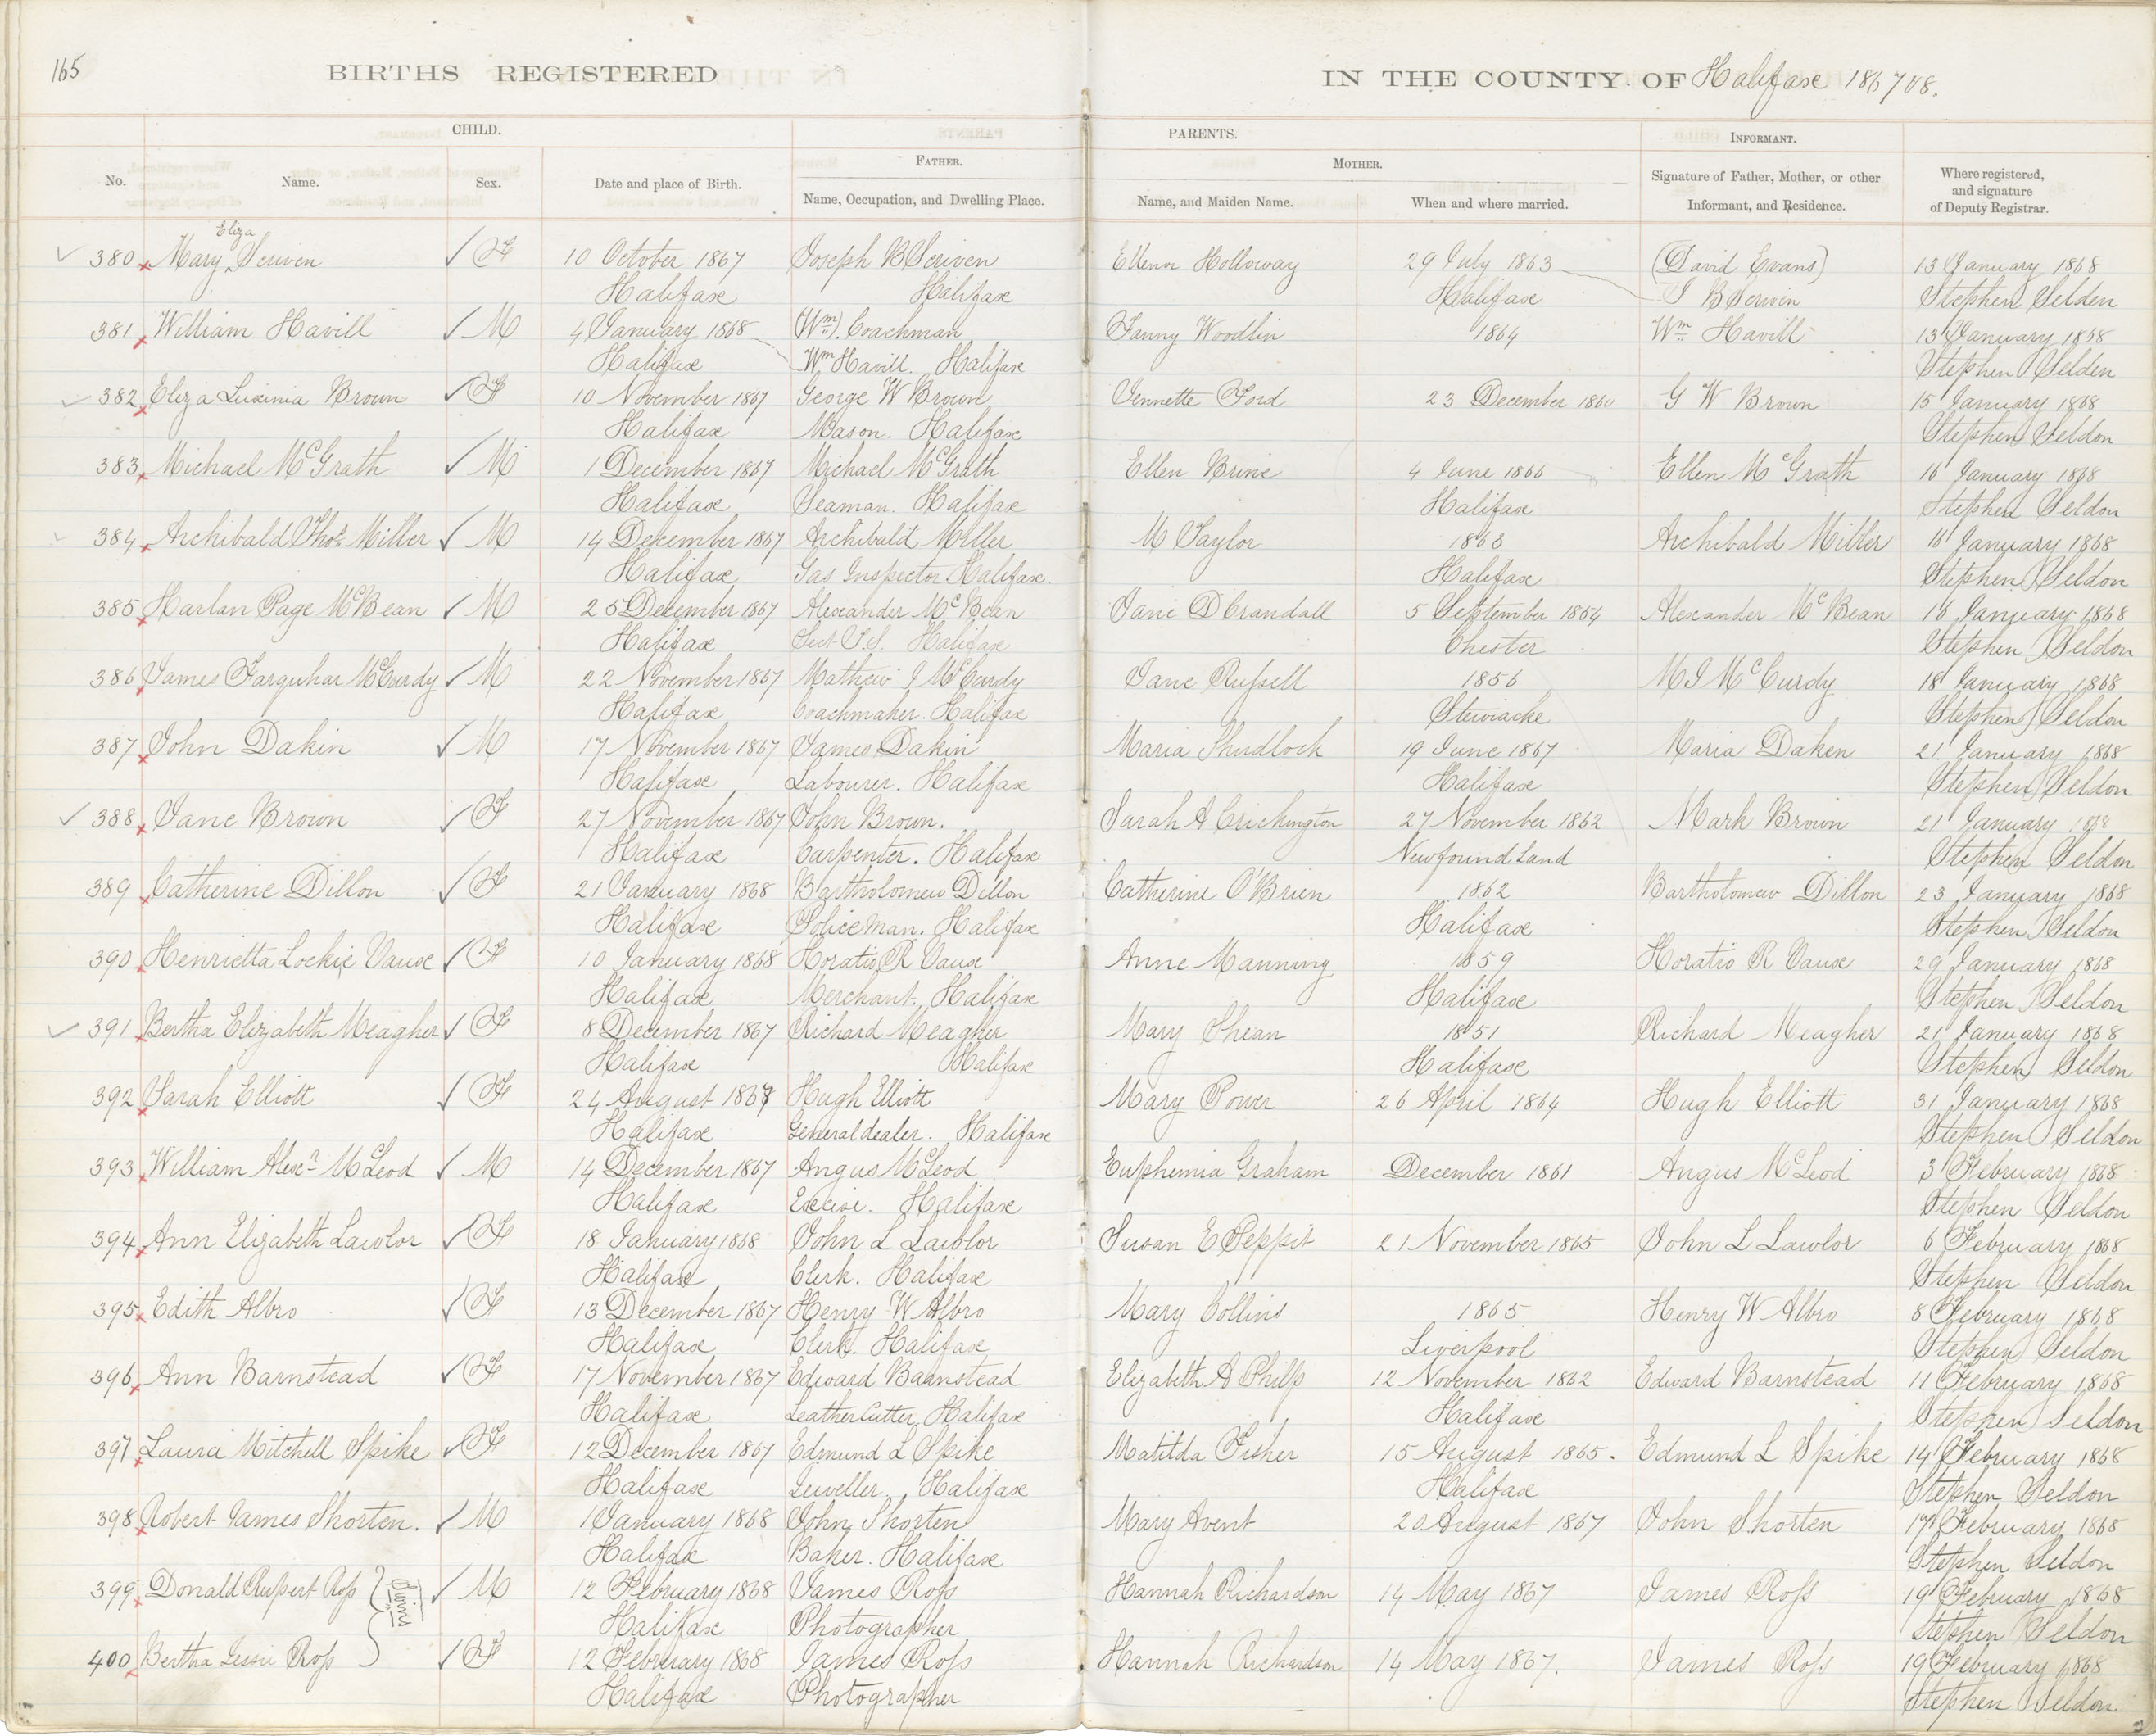 165
BIRTHS REGISTERED IN THE COUNTY OF Halifax 1867 & 8.
CHILD. PARENTS. INFORMANT.
No. Name. Sex. Date and place of Birth. FATHER. Name, Occupation, and Dwelling Place. MOTHER. Name, and Maiden Name. When and where married. Signature of Father, Mother, or other Informant, and Residence. Where registered, and signature of Deputy Registrar.
Eliza
380 Mary ^ Scriven F 10 October 1867 Joseph B Scriven Ellenor Holloway 29 July 1863 (David Evans) 13 January 1868
Halifax Halifax Halifax J B Scriven Stephen Selden
381 William Havill M 4 January 1868 (Wm). Coachman Fanny Woodlin 1864 Wm Havill 13 January 1868
Halifax Wm Havill. Halifax Stephen Selden
382 Eliza Luxinia Brown F 10 November 1867 George W Brown Jennette Ford 23 December 1860 G W Brown 15 January 1868
Halifax Mason. Halifax Stephen Seldon
383 Michael McGrath M 1 December 1867 Michael McGrath Ellen Brine 4 June 1866 Ellen McGrath 16 January 1868
Halifax Seaman. Halifax Halifax Stephen Seldon
384 Archibald Thos Miller M 14 December 1867 Archibald Miller M Taylor 1863 Archibald Miller 16 January 1868
Halifax Gas Inspector Halifax. Halifax Stephen Seldon
385 Harlan Page McBean M 25 December 1867 Alexander McBean Jane D Crandall 5 September 1854 Alexander McBean 16 January 1868
Halifax Sect. T.S. Halifax Chester Stephen Seldon
386 James Farquhar McCurdy M 22 November 1867 Mathew J McCurdy Jane Russell 1856 M J McCurdy 18 January 1868
Halifax Coachmaker. Halifax Stewiacke Stephen Seldon
387 John Dakin M 17 November 1867 James Dakin Maria Shudlock 19 June 1867 Maria Daken 21 January 1868
Halifax Labourer. Halifax Halifax Stephen Seldon
388 Jane Brown F 27 November 1867 John Brown. Sarah A Crichington 27 November 1862 Mark Brown 21 January 1868
Halifax Carpenter. Halifax Newfound Land Stephen Seldon
389 Catherine Dillon F 21 January 1868 Bartholomew Dillon Catherine O'Brien 1862 Bartholomew Dillon 23 January 1868
Halifax Policeman. Halifax Halifax Stephen Seldon
390 Henrietta Lockie Vause F 10 January 1868 Horatio R Vause Anne Manning 1859 Horatio R Vause 29 January 1868
Halifax Merchant. Halifax Halifax Stephen Seldon
391 Bertha Elizabeth Meagher F 8 December 1867 Richard Meagher Mary Shean 1851 Richard Meagher 21 January 1868
Halifax Halifax Halifax Stephen Seldon
392 Sarah Elliott F 24 August 1867 Hugh Elliott Mary Power 26 April 1864 Hugh Elliott 31 January 1868
Halifax General dealer. Halifax Stephen Seldon
393 William Alexr McLeod M 14 December 1867 Angus McLeod Euphemia Graham December 1861 Angus McLeod 3 February 1868
Halifax Excise. Halifax Stephen Seldon
394 Ann Elizabeth Lawlor F 18 January 1868 John L Lawlor Susan E Peppit 21 November 1865 John L Lawlor 6 February 1868
Halifax Clerk. Halifax Stephen Seldon
395 Edith Albro F 13 December 1867 Henry W Albro Mary Collins 1865 Henry W Albro 8 February 1868
Halifax Clerk. Halifax Liverpool Stephen Seldon
396 Ann Barnstead F 17 November 1867 Edward Barnstead Elizabeth A Philp 12 November 1862 Edward Barnstead 11 February 1868
Halifax Leather Cutter Halifax Halifax Stephen Seldon
397 Laura Mitchell Spike F 12 December 1867 Edmund L Spike Matilda Fisher 15 August 1865. Edmund L Spike 14 February 1868
Halifax Jeweller. Halifax Halifax Stephen Seldon
398 Robert James Shorten. M 1 January 1868 John Shorten Mary Avent 20 August 1867 John Shorten 17 February 1868
Halifax Baker. Halifax Stephen Seldon
399 Donald Rupert Ross Twins M 12 February 1868 James Ross Hannah Richardson 14 May 1867 James Ross 19 February 1868
Halifax Photographer Stephen Seldon
400 Bertha Jessie Ross F 12 February 1868 James Ross Hannah Richardson 14 May 1867. James Ross 19 February 1868
Halifax Photographer Stephen Seldon